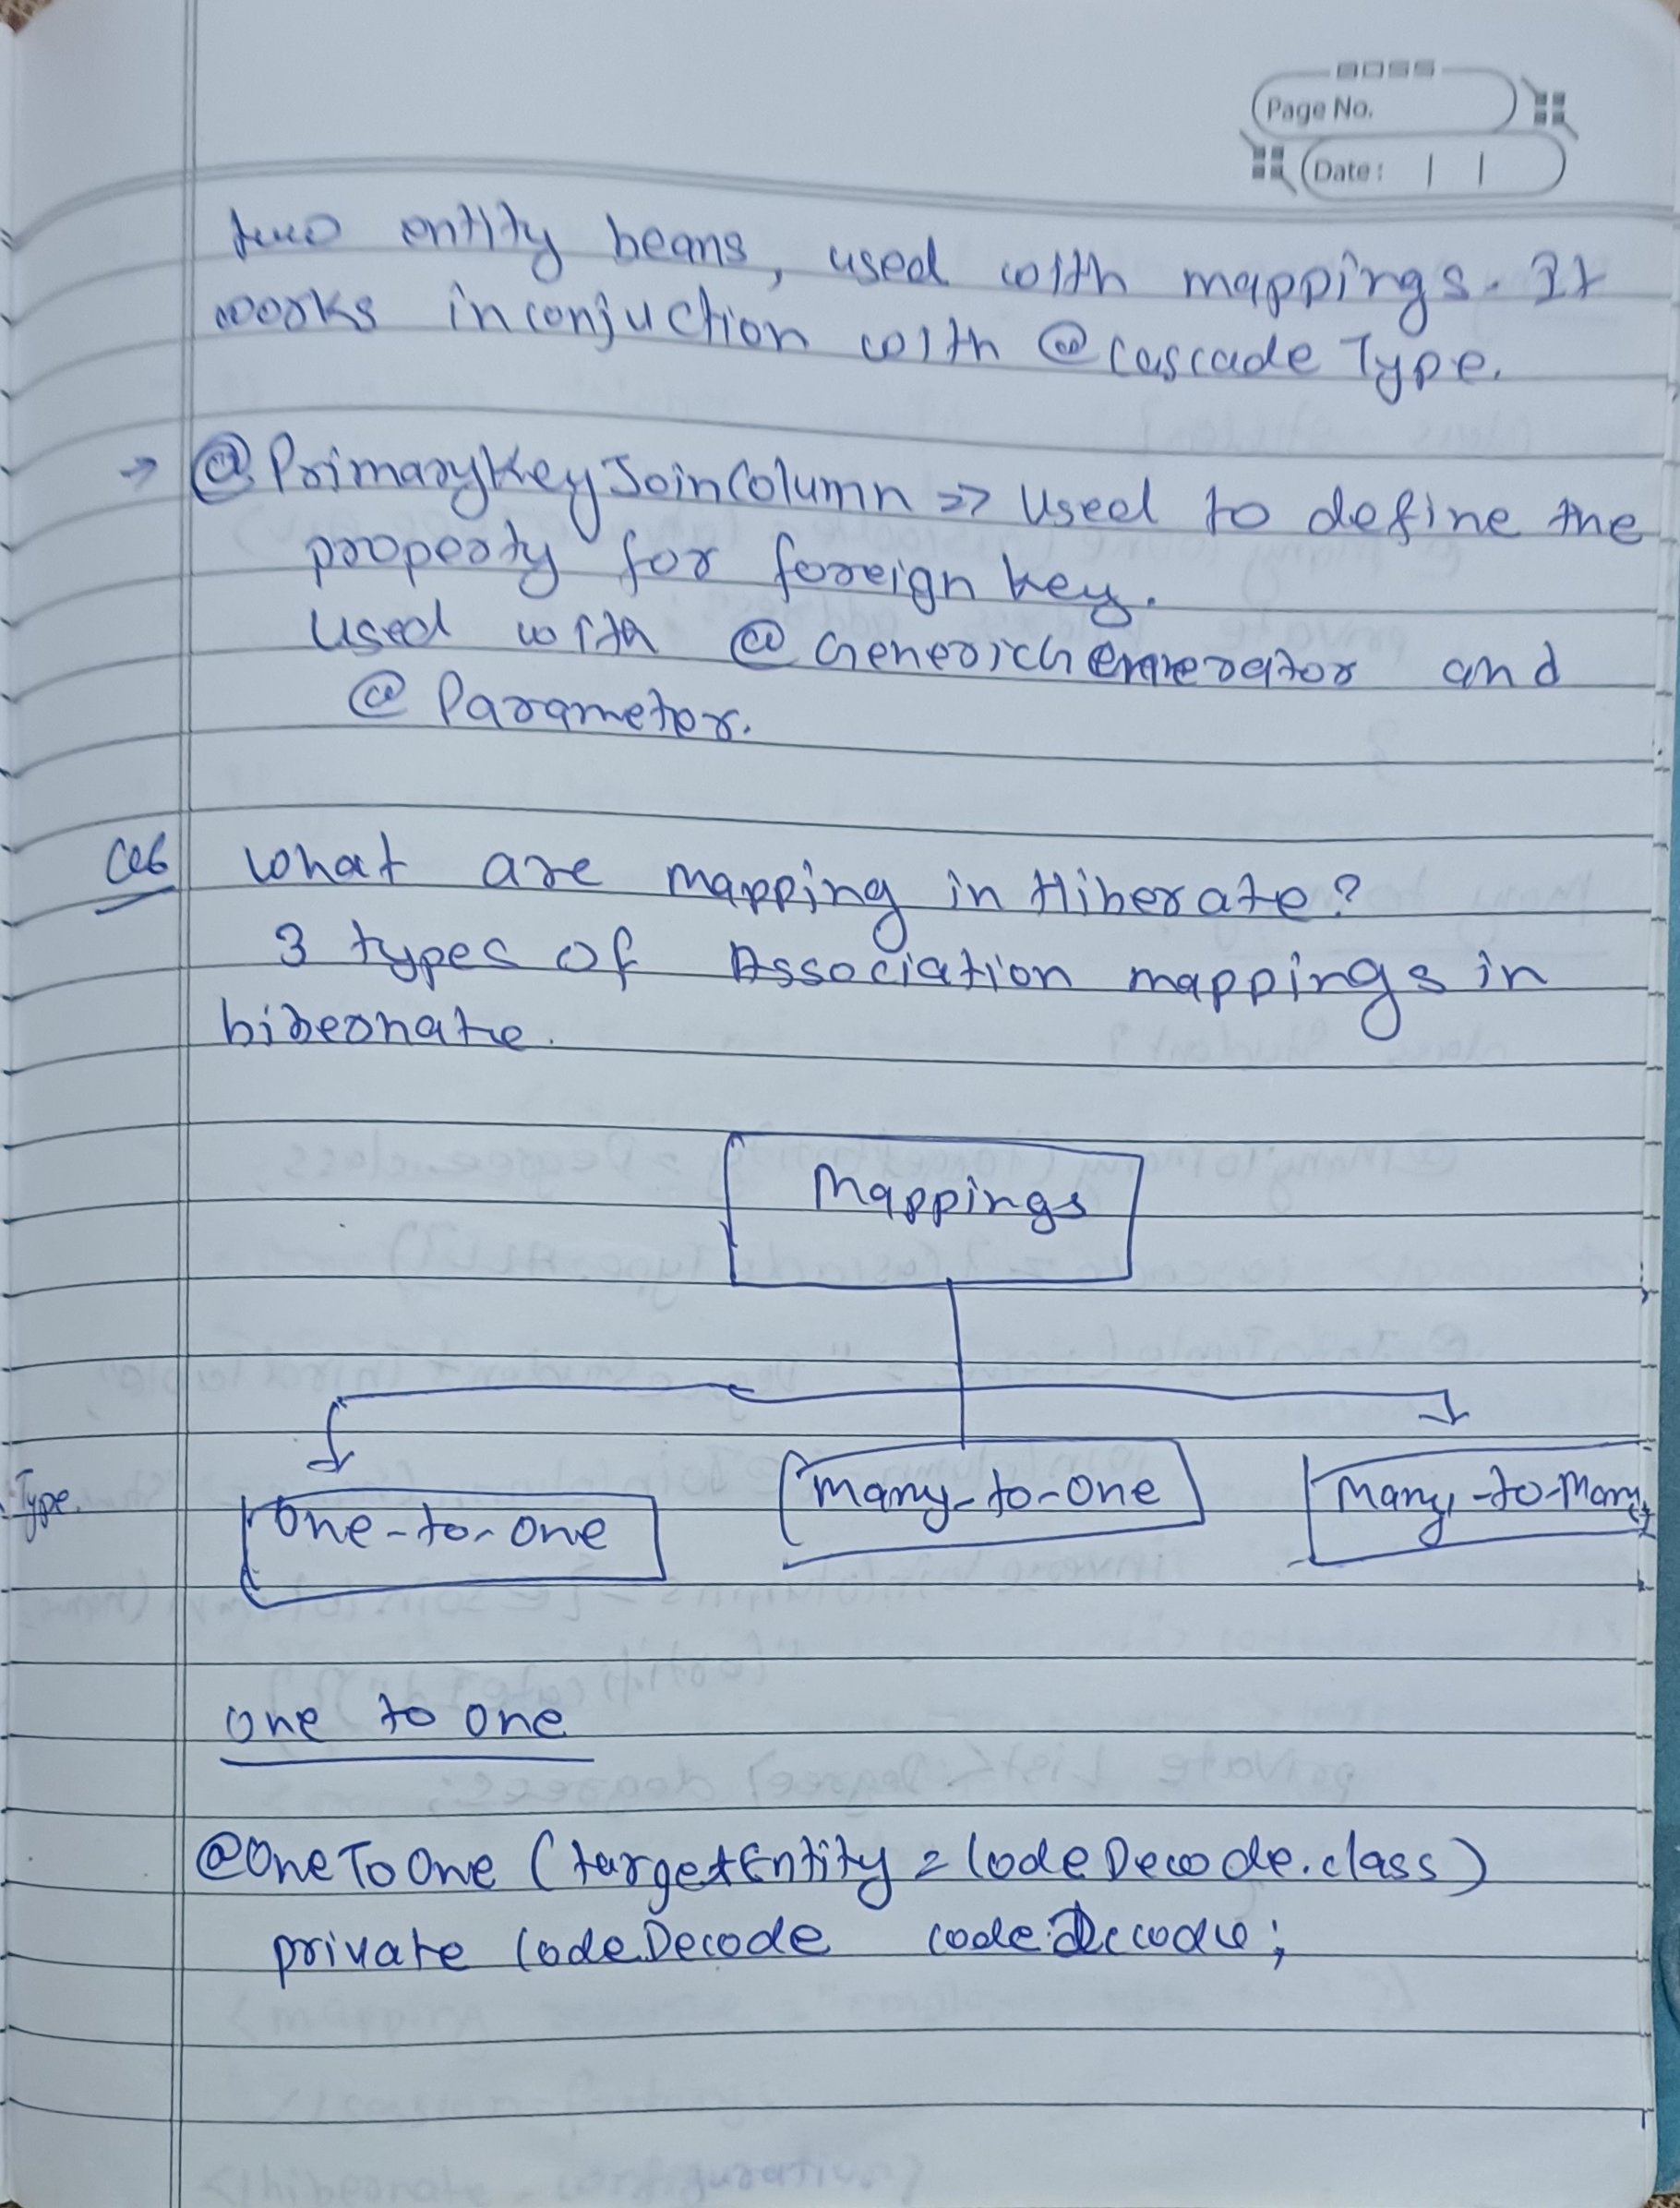 BOSS
Page No.
Date :
two entity beans, used with mappings. It
works in conjuction with @CascadeType.
→ @PrimaryKeyJoinColumn => Used to define the
property for foreign key.
Used with @GenericGenerator and
@Parameter.
Q6 What are mapping in Hiberate?
3 types of Association mappings in
hibernate.
Mappings
Type.
One-to-one
Many-to-One
Many-to-Many
One to one
@OneToOne (targetEntity = CodeDecode.class)
private CodeDecode codeDecode;